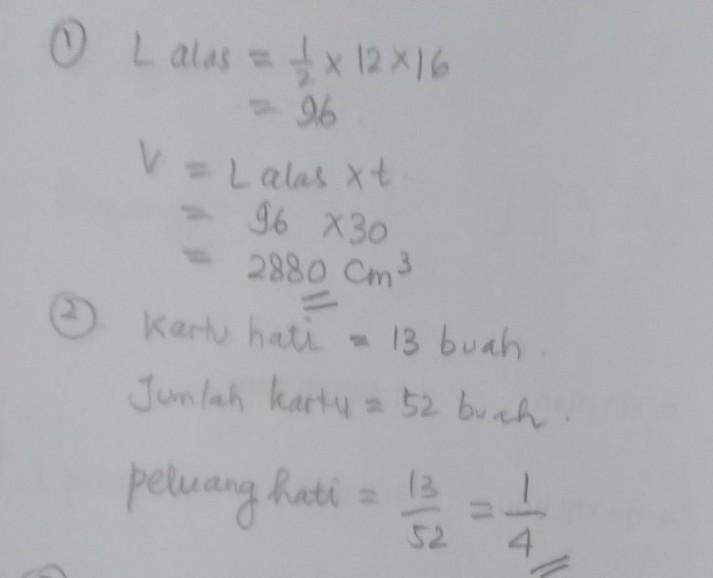 ① L alas = 1/2 x 12 x 16
= 96
V = L alas x t
= 96 x 30
= 2880 Cm³
② Kartu hati = 13 buah.
Jumlah kartu = 52 buah.
peluang hati = 13/52 = 1/4